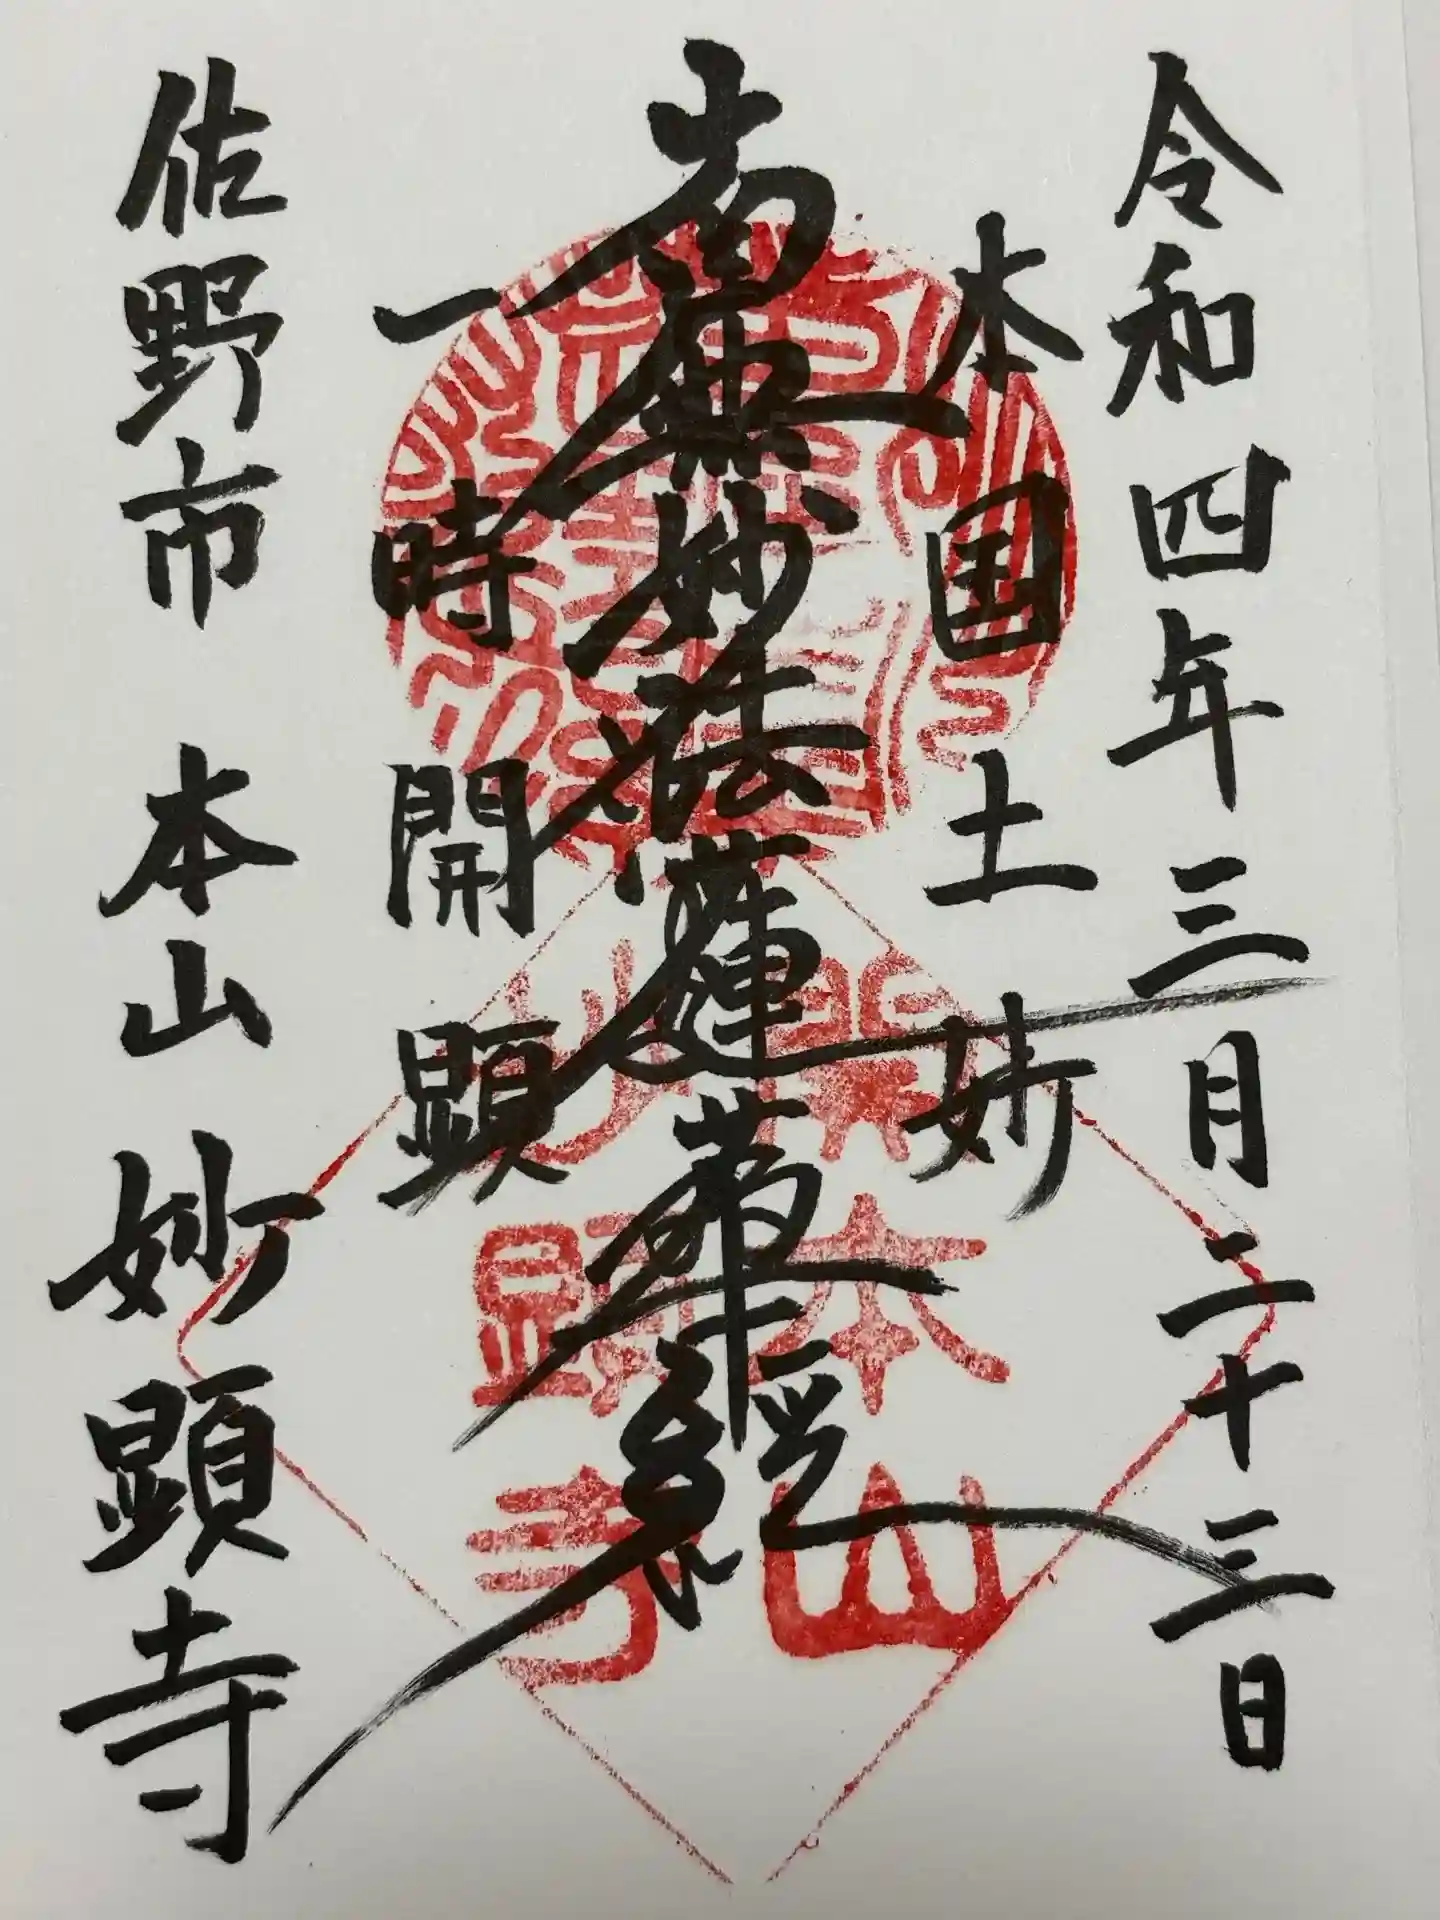 令和四年三月二十三日
本国土妙
南無妙法蓮華経
一時開顕
佐野市 本山 妙顕寺
開本山
妙顕寺